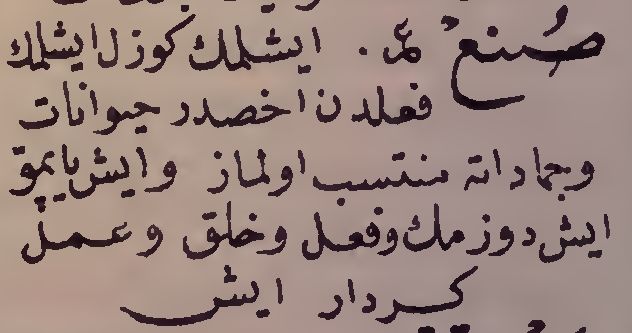 صُنع ع. ايشلمك كوزل ايشلمك
فعلدن اخصدر حيوانات
وجماداته منتسب اولماز وايش يايمق
ايش دوزمك وفعل وخلق وعمل
كردار ايش